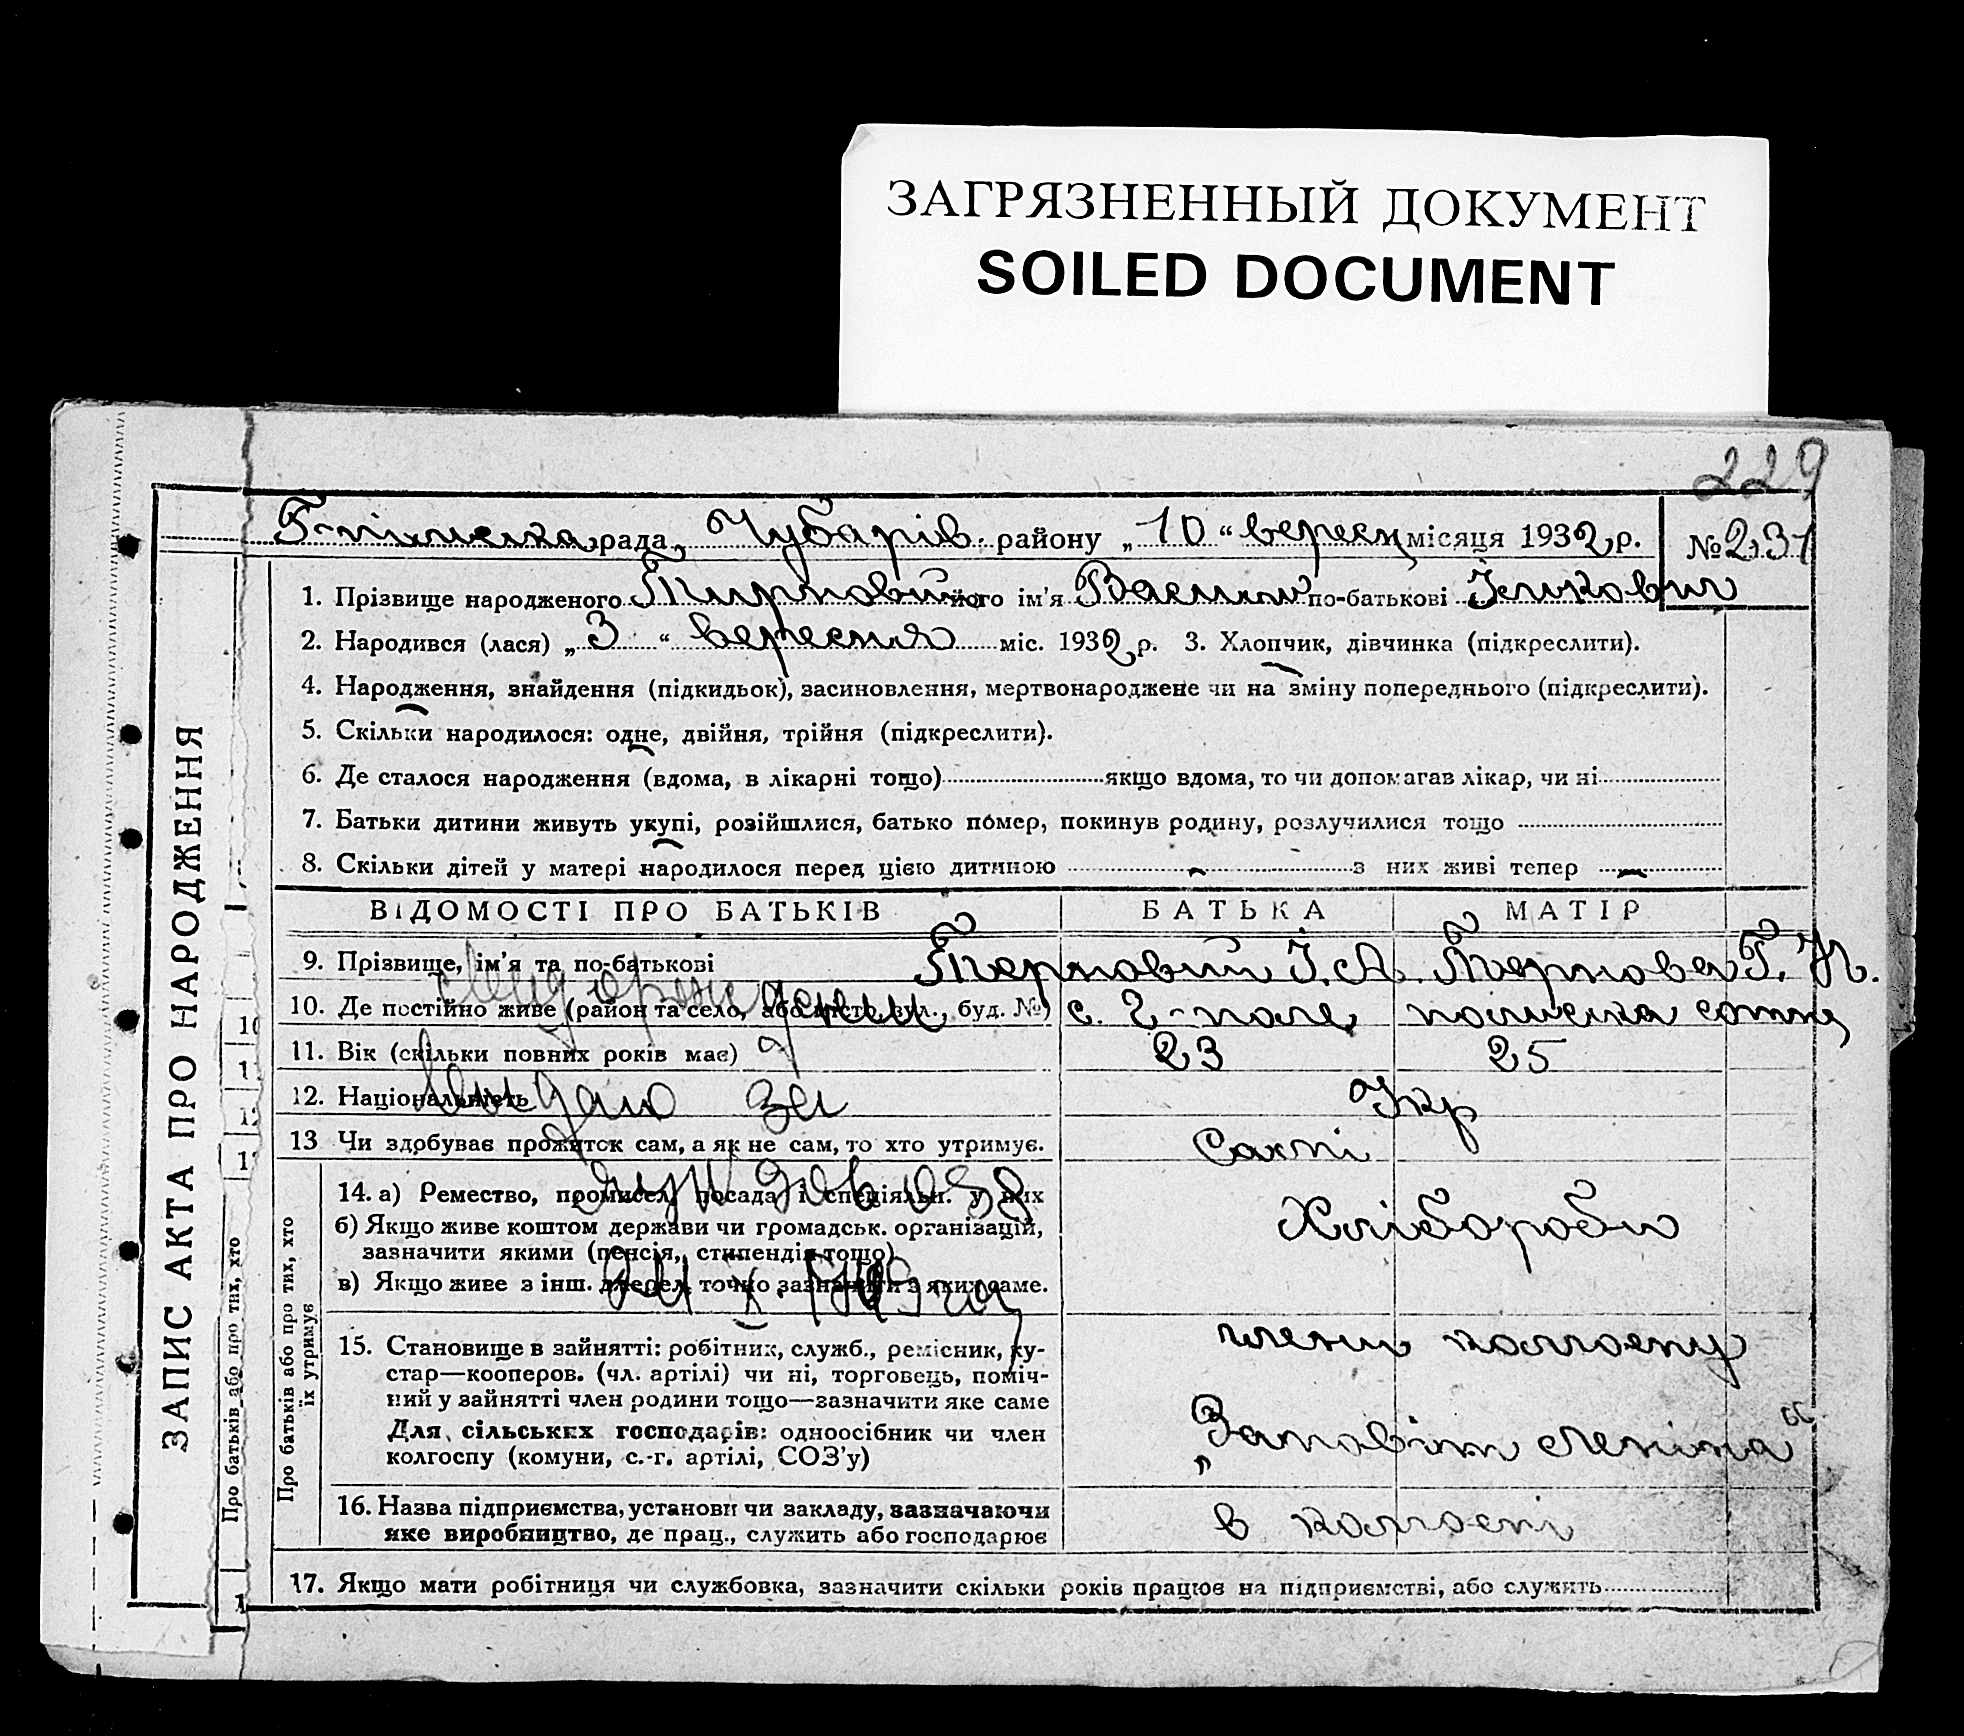 ЗАГРЯЗНЕННЫЙ ДОКУМЕНТ
SOILED DOCUMENT
229
Г-пільська рада, Чубарів. району „10“ вересн місяця 1932 р. № 231
1. Прізвище народженого Терновий його ім’я Василь по-батькові Ількович
2. Народився (лася) „3“ вересня міс. 1932 р. 3. Хлопчик, дівчинка (підкреслити).
4. Народження, знайдення (підкидьок), засиновлення, мертвонароджене чи на зміну попереднього (підкреслити).
5. Скільки народилося: одне, двійня, трійня (підкреслити).
6. Де сталося народження (вдома, в лікарні тощо) якщо вдома, то чи допомагав лікар, чи ні
7. Батьки дитини живуть укупі, розійшлися, батько помер, покинув родину, розлучилися тощо
8. Скільки дітей у матері народилося перед цією дитиною - з них живі тепер -
ВІДОМОСТІ ПРО БАТЬКІВ БАТЬКА МАТІР
9. Прізвище, ім’я та по-батькові Терновий І. А. Тернова Г.
10. Де постійно живе (район та село, або місто, вул., буд. №) с. Г-поле, польська сотня
11. Вік (скільки повних років має) 23 25
12. Національність Укр
13 Чи здобуває прожиток сам, а як не сам, то хто утримує. Самі
14. а) Ремество, промисел, посада і спеціяльн. у них Хлібороби
б) Якщо живе коштом держави чи громадськ. організацій,
зазначити якими (пенсія, стипендія тощо)
в) Якщо живе з інш. джерел, точно зазначити з яких саме.
15. Становище в зайнятті: робітник, служб., ремісник, ку-
стар—кооперов. (чл. артілі) чи ні, торговець, поміч-
ний у зайнятті член родини тощо—зазначити яке саме
Для сільських господарів: одноосібник чи член
колгоспу (комуни, с.-г. артілі, СОЗ’у)
члени колгоспу
„Заповіт Леніна“
16. Назва підприємства, установи чи закладу, зазначаючи
яке виробництво, де прац., служить або господарює
в колгоспі
17. Якщо мати робітниця чи службовка, зазначити скільки років працює на підприємстві, або служить
видано за
ЗАПИС АКТА ПРО НАРОДЖЕННЯ
Про батьків або про тих, хто
Про батьків або про тих, хто
їх утримує